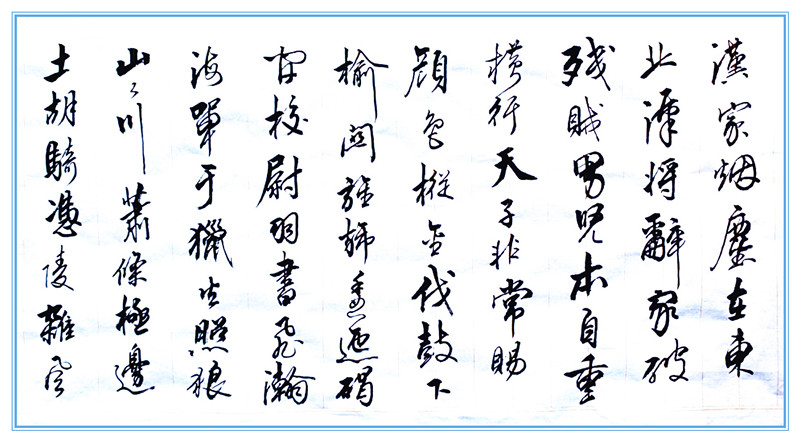 漢家烟塵在東
北漢將辭家破
殘賊男兒本自重
橫行天子非常賜
顏色摐金伐鼓下
榆關旌旆逶迤碣
間校尉羽書飛瀚
海單于獵火照狼
山々川蕭條極邊
土胡騎憑陵雜風